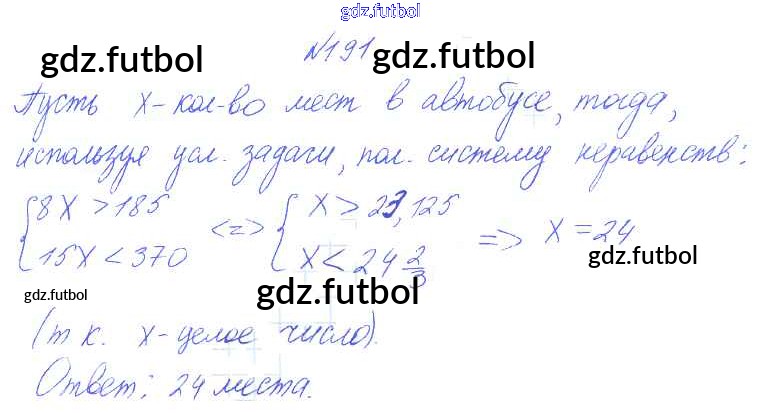 gdz.futbol
№191
gdz.futbol gdz.futbol
Пусть x - кол-во мест в автобусе, тогда,
используя усл. задачи, пол. систему неравенств:
{ 8x > 185 <=> { x > 23,125 => x = 24
{ 15x < 370 { x < 24 2/3
gdz.futbol
gdz.futbol gdz.futbol
(т к. x - целое число).
Ответ: 24 места.